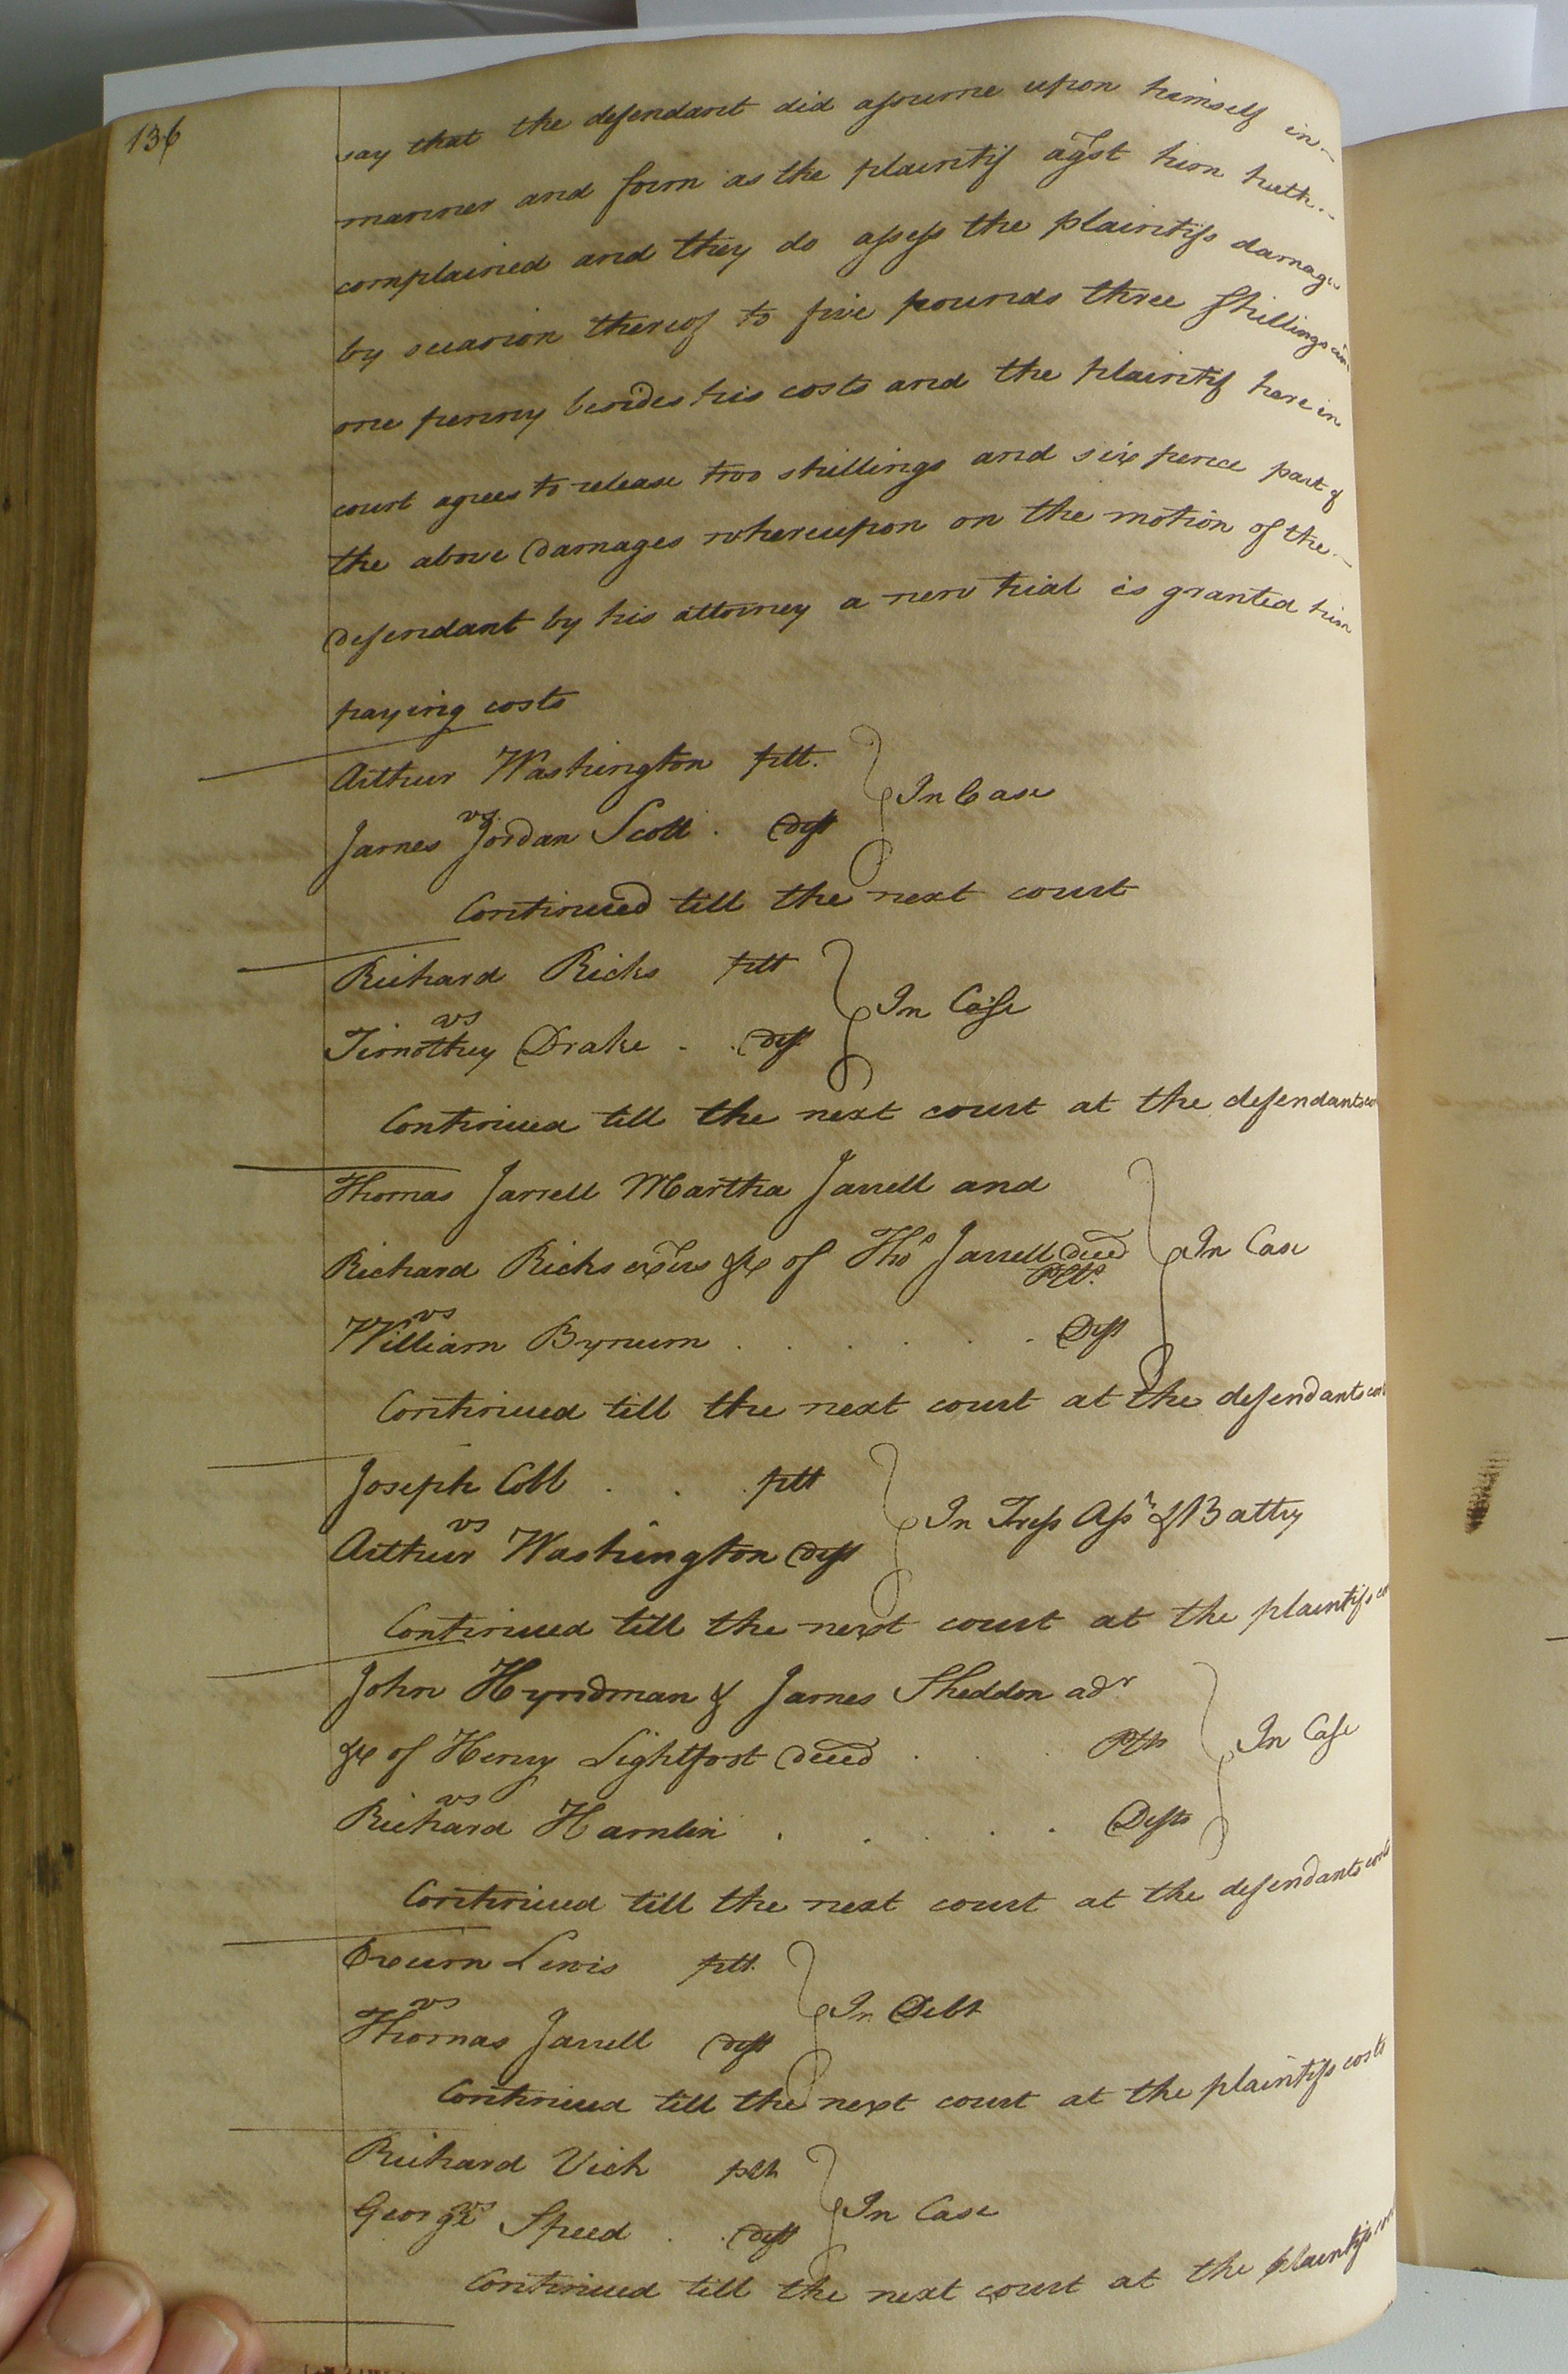 136
say that the defendant did assume upon himself in
manner and form as the plaintif agst him hath
complained and they do assess the plaintifs damages
by occasion thereof to five pounds three shillings and
one penny besides his costs and the plaintif here in
court agrees to release two shillings and six pence part of
the above damages whereupon on the motion of the
defendant by his attorney a new trial is granted him
paying costs
Arthur Washington plt.
In Case
vs.
James Jordan Scott . deft
Continued till the next court
Richard Ricks plt
In Case
vs
Timothy Drake . . deft
Continued till the next court at the defendants
Thomas Jarrell Martha Jarrell and
Richard Ricks exors &c of Thos Jarrell decd
Plts.
In Case
vs
William Bynum . . . . . . Deft
Continued till the next court at the defendants cost
Joseph Cobb . . . plt
In Tress Asst & Battry
vs
Arthur Washington deft
Continued till the next court at the plaintifs
John Hyndman & James Sheddon adr
&c of Henry Lightfoot decd . . . Plts
In Case
vs
Richard Hamlin . . . . . Defts
Continued till the next court at the defendants costs
Exum Lewis plt.
In Debt
vs
Thomas Jarrell deft
Continued till the next court at the plaintifs costs
Richard Vick plt
In Case
vs
George Speed . . deft
Continued till the next court at the plaintifs